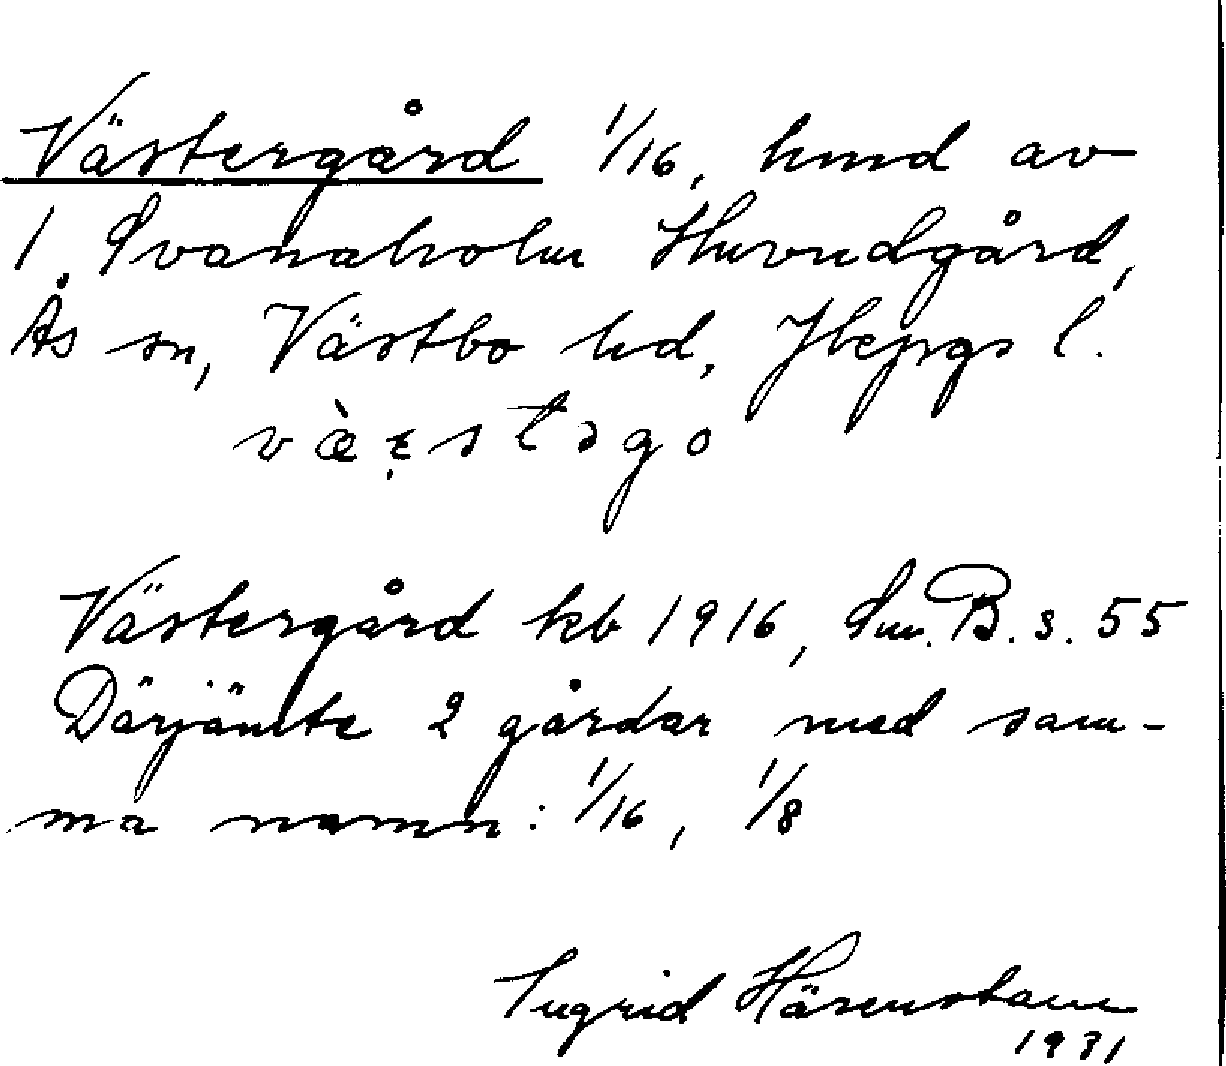 Västergård 1/16, hmd av
1 Svanaholm Huvudgård,
Ås sn, Västbo hd, Jkpgs l.
Västergård kb 1916, Sm. B. s. 55
Därjämte 2 gårdar med sam-
ma namn: 1/16, 1/8
Ingrid Härenstam
1931